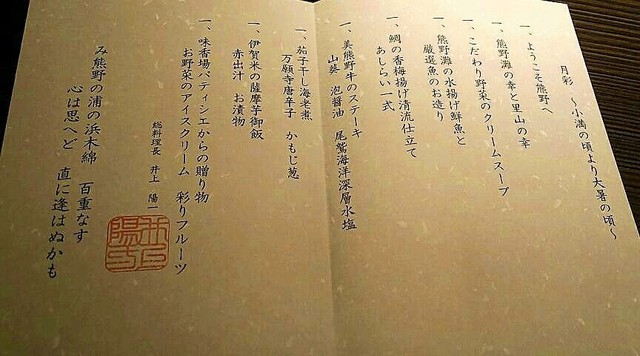 月彩　〜小満の頃より大暑の頃〜
一、ようこそ熊野へ
一、熊野灘の幸と里山の幸
一、こだわり野菜のクリームスープ
一、熊野灘の水揚げ鮮魚と
厳選魚のお造り
一、鯛の香梅揚げ清流仕立て
あしらい一式
一、美熊野牛のステーキ
山葵　泡醤油　尾鷲海洋深層水塩
一、茄子干し海老煮
万願寺唐辛子　かもじ葱
一、伊賀米の薩摩芋御飯
赤出汁　お漬物
一、味香場パティシエからの贈り物
お野菜のアイスクリーム　彩りフルーツ
総料理長　井上　陽一
み熊野の浦の浜木綿　百重なす
心は思へど　直に逢はぬかも